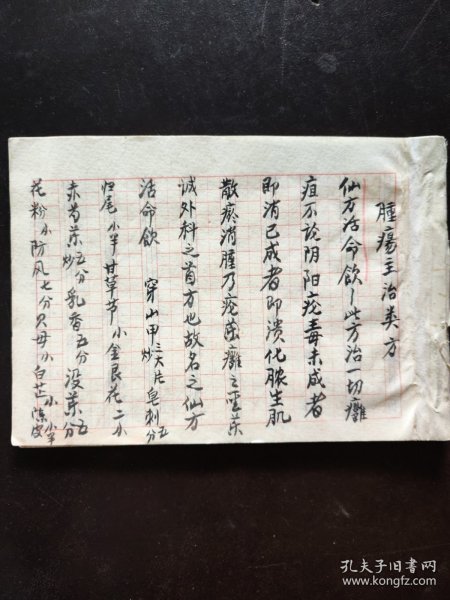 肿疡主治类方
仙方活命飲 此方治一切癰
疽不论阴阳疮毒未成者
即消已成者即溃化脓生肌
散瘀消腫乃疮痈癰之圣药
诚外科之首方也故名之仙方
活命飲 穿山甲炒三大片 皂刺五分
归尾小半甘草节小金艮花二小
赤芍药炒五分乳香五分没药五分
花粉小防风七分贝母小白芷小陈皮小半
孔夫子旧书网
www.kongfz.com